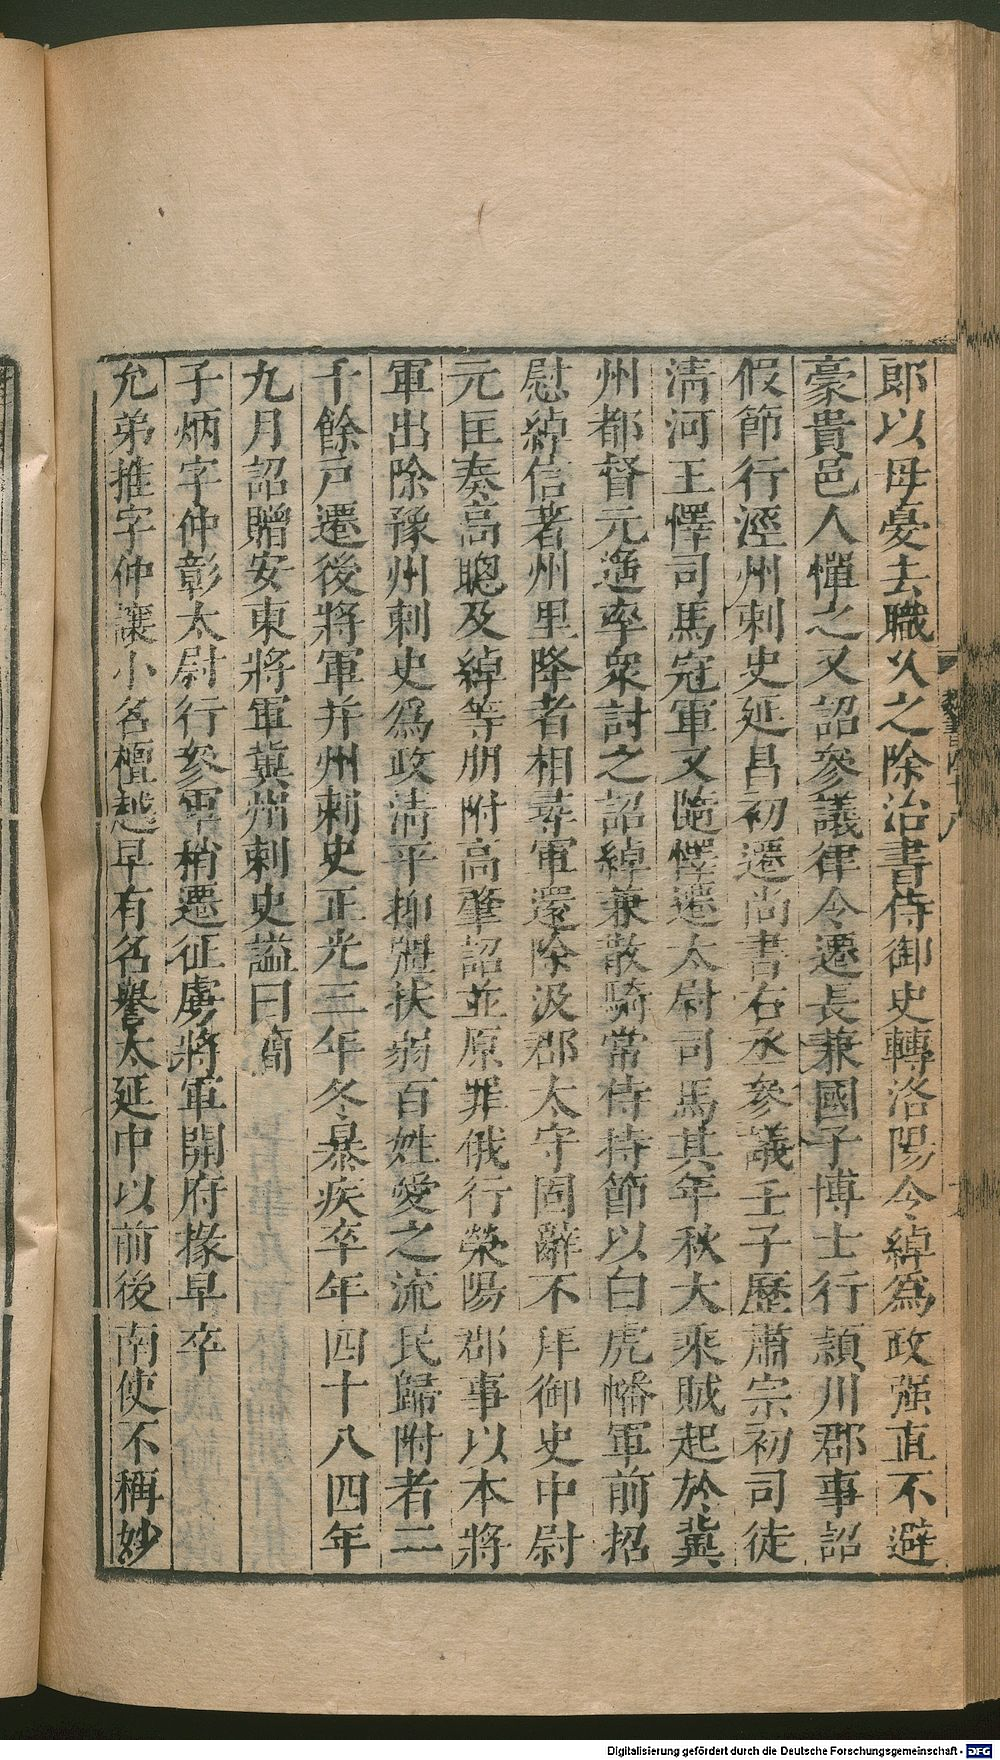 郎以母憂去職久之除治書侍御史轉洛陽令綽爲政强直不避
豪貴邑人憚之又詔參議律令遷長兼國子博士行潁川郡事詔
假節行涇州刺史延昌初遷尚書右丞參議壬子歷肅宗初司徒
淸河王懌司馬冠軍又隨懌遷太尉司馬其年秋大乘賊起於冀
州都督元遙率衆討之詔綽兼散騎常侍持節以白虎幡軍前招
慰綽信著州里降者相尋軍還除汲郡太守固辭不拜御史中尉
元匡奏高聰及綽等朋附高肇詔並原罪俄行滎陽郡事以本將
軍出除豫州刺史爲政淸平抑彊扶弱百姓愛之流民歸附者二
千餘戸遷後將軍并州刺史正光三年冬暴疾卒年四十八四年
九月詔贈安東將軍冀州刺史謚曰簡
子炳字仲彰太尉行參軍稍遷征虜將軍開府掾早卒
允弟推字仲讓小名檀越早有名譽太延中以前後南使不稱妙
魏書四十八
Digitalisierung gefördert durch die Deutsche Forschungsgemeinschaft - DFG